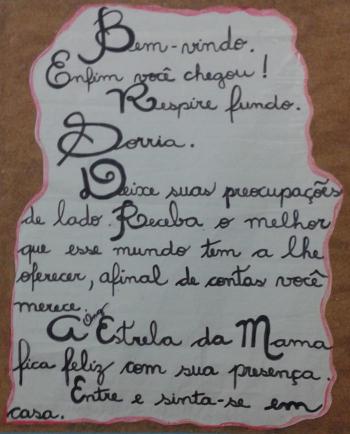 Bem-vindo.
Enfim você chegou!
Respire fundo.
Sorria.
Deixe suas preocupações
de lado. Receba o melhor
que esse mundo tem a lhe
oferecer, afinal de contas você
merece.
A Estrela da Mama
fica feliz com sua presença.
Entre e sinta-se em
casa.